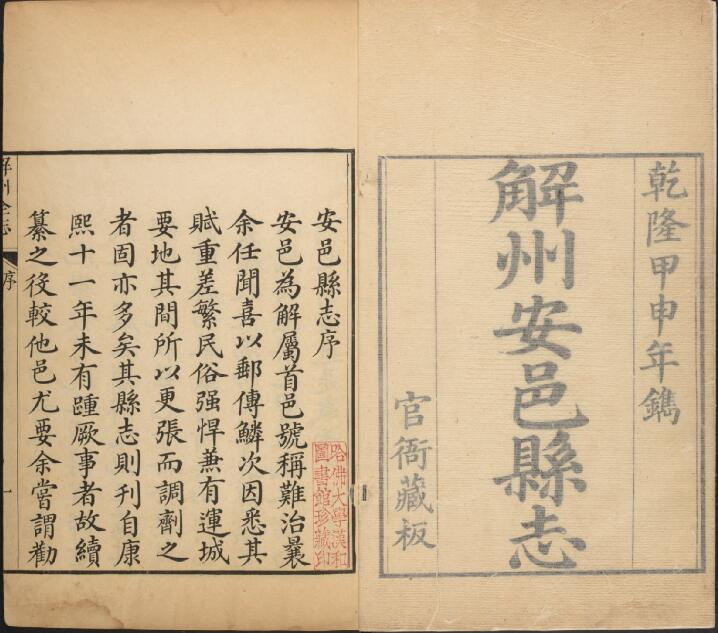 乾隆甲申年鐫
解州安邑縣志
官衙藏板
安邑縣志序
安邑為解屬首邑號稱難治曩
余任聞喜以郵傳鱗次因悉其
賦重差繁民俗强悍蕪有運城
要地其間所以更張而調劑之
者固亦多矣其縣志則刊自康
熙十一年未有踵厥事者故續
纂之役較他邑尤要余嘗謂勸
哈佛大學漢和
圖書館珍藏印
解州全志
序
一